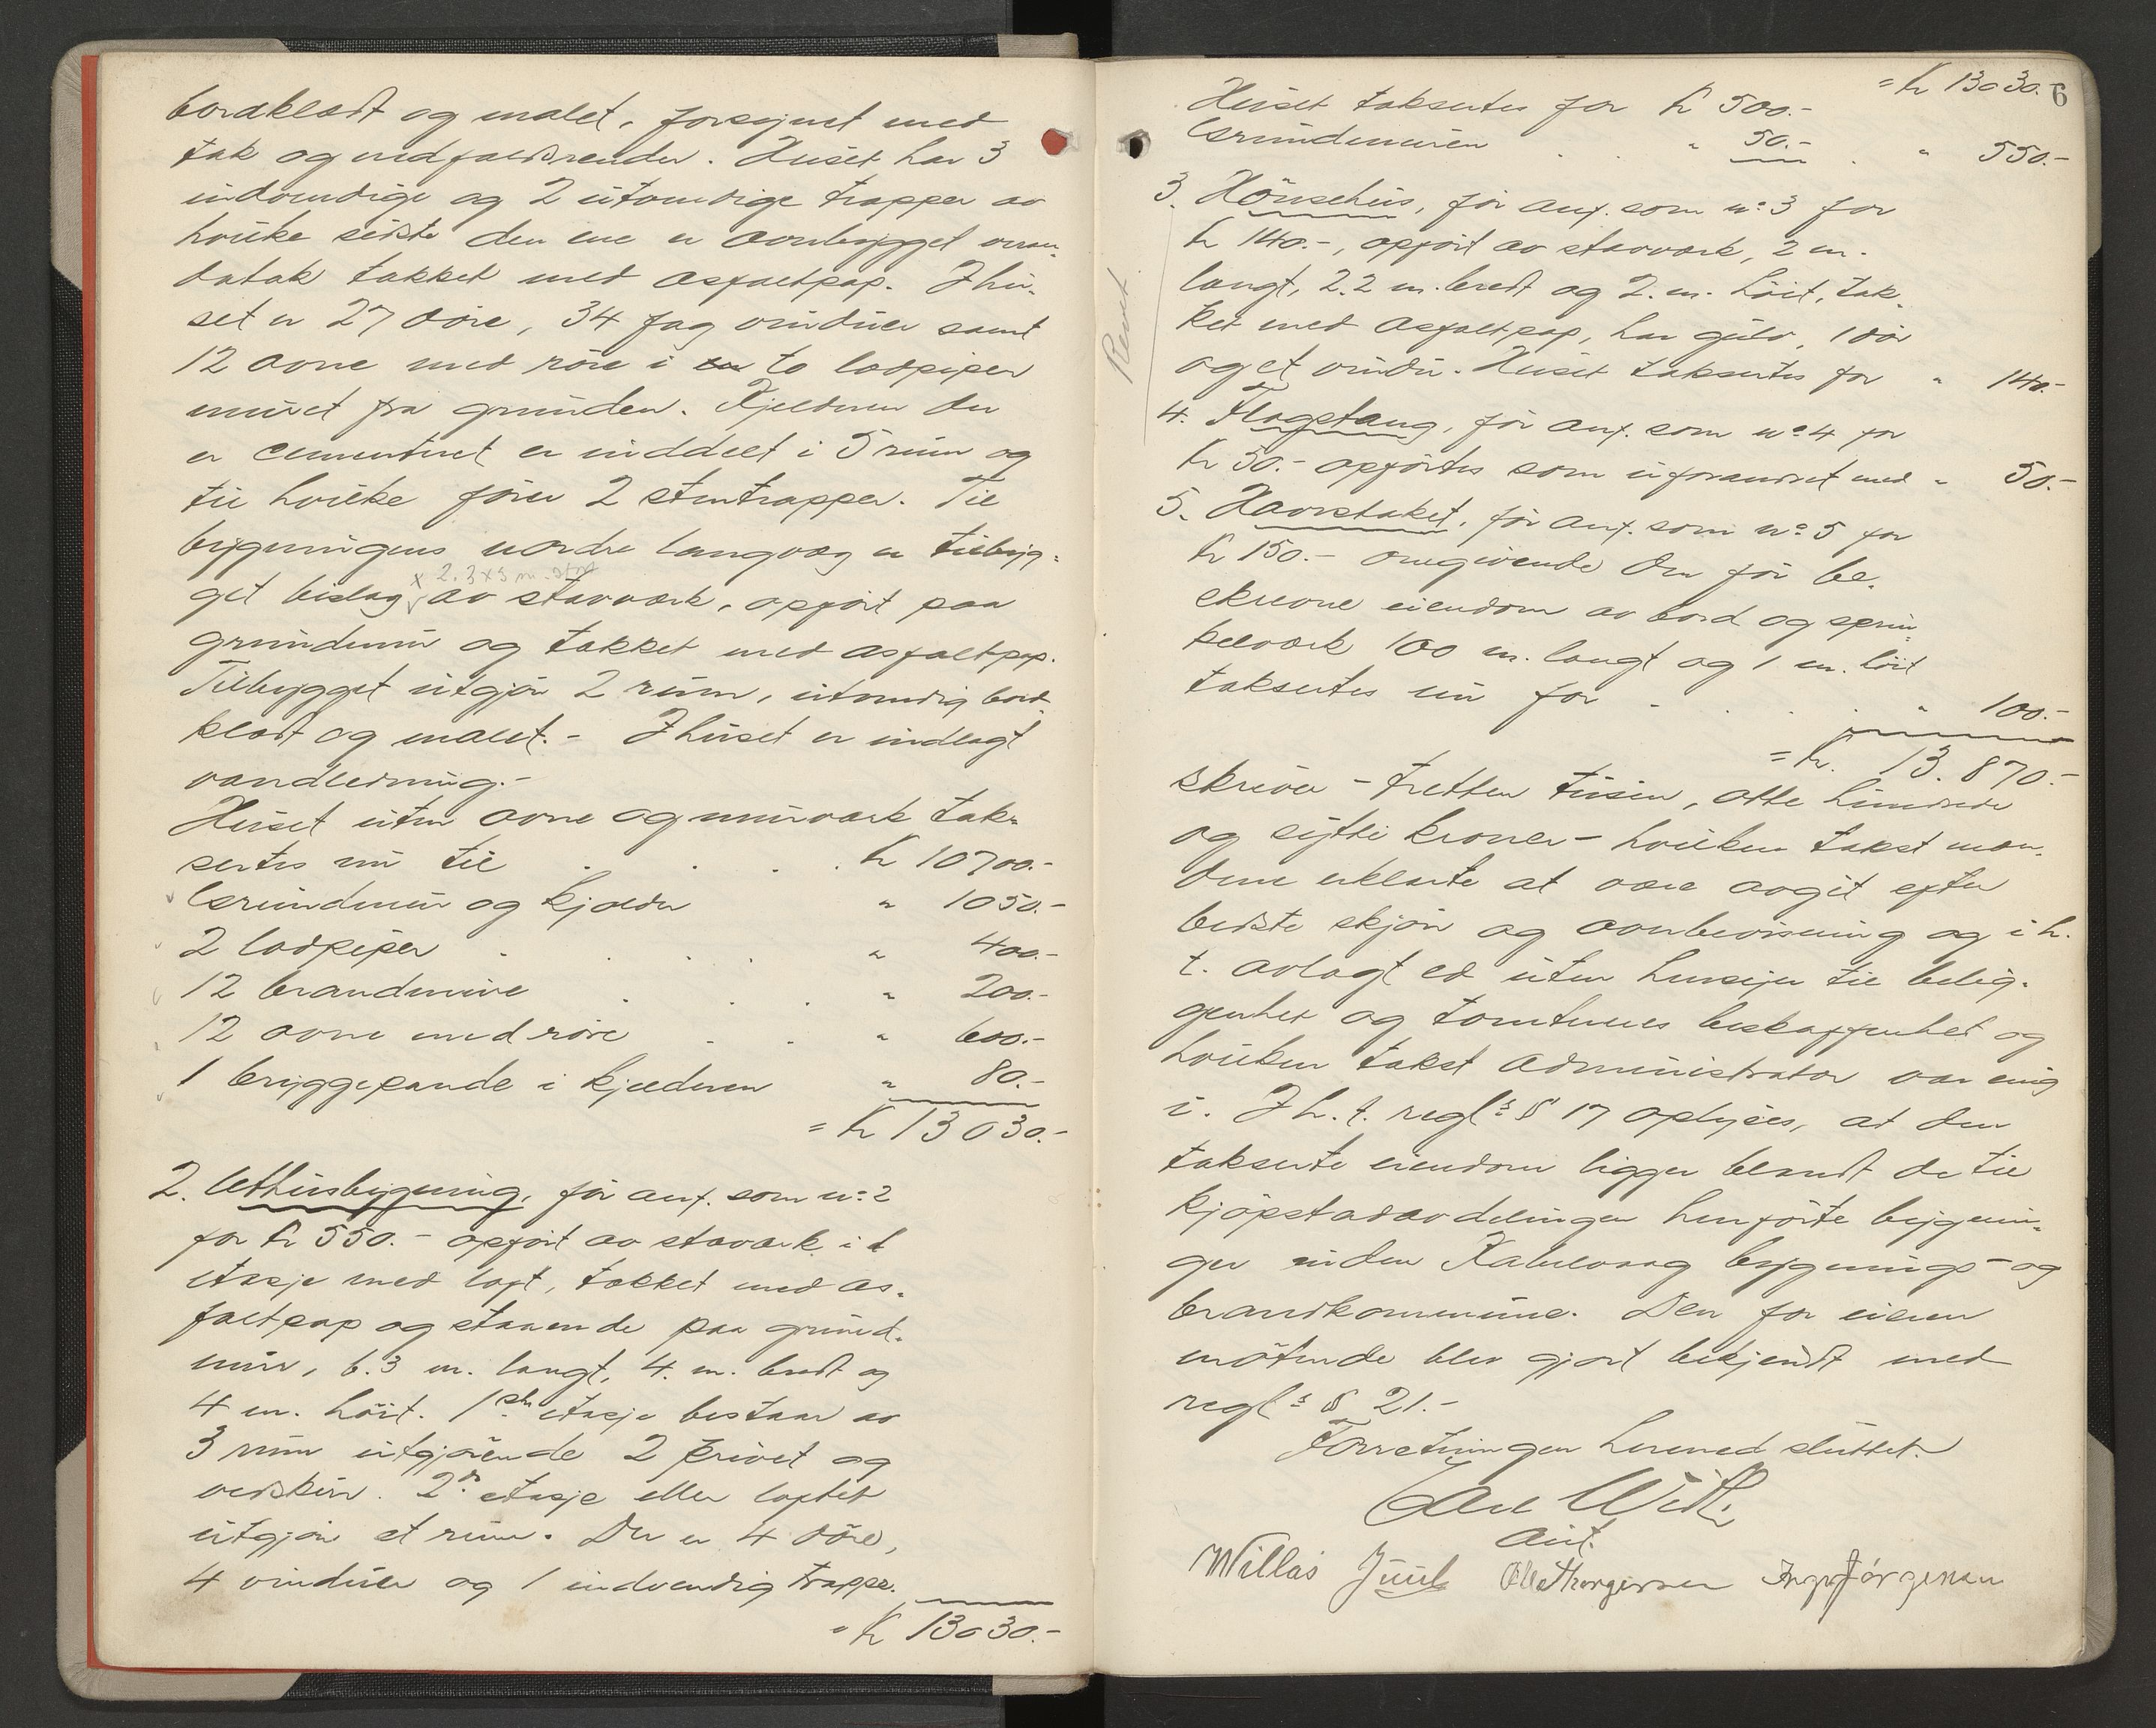 bordklædt og malet, forsynet med
tak og nedfaldsrender. Huset har 3
indvendige og 2 utvendige trapper av
hvilke sidste den ene er overbygget veran-
datak takket med asfaltpap. I hu-
set er 27 døre, 34 fag vinduer samt
12 ovne med røre i to lodpiper
muret fra grunden. Kjelderen der
er cementeret er inddelt i 5 rum og
til hvilke fører 2 stentrapper. Til
bygningens nordre langvæg er tilbyg-
x 2.3 x 3 m. stort
get bislag av stavværk, opført paa
grundmur og takket med asfaltpap.
Tilbygget utgjør 2 rum, utvendig bord-
klædt og malet. - I huset er indlagt
vandledning. -
Huset uten ovne og murværk tak-
sertes nu til . . . . kr 10700.-
Grundmur og kjælder " 1050.-
2 lodpiper . . . . " 400.-
12 brandmure . . . " 200.-
12 ovne med røre . . " 600.-
1 bryggepande i kjelderen " 80.-
= kr 13030.-
2. Uthusbygning, før anf. som no 2
for kr 550.- opført av stavværk i 1
etasje med loft, takket med as-
faltpap og staaende paa grund-
mur, 6.3 m. langt, 4. m. bredt og
4 m. höit. 1ste etasje bestaar av
3 rum utgjørende 2 privet og
vedskur. 2n etasje eller loftet
utgjør et rum. Der er 4 döre,
4 vinduer og 1 indvendig trappe.
= kr 13030.-
6
= kr 13030.-
Huset taksertes for kr 500.-
Grundmuren . . " 50.- . " 550.-
3. Hönsehus, før anf. som no 3 for
kr 140.-, opført av stavværk, 2 m.
langt, 2.2 m. bredt og 2. m. höit, tak-
ket med asfaltpap, har gulv, 1 dör
og et vindu. Huset taksertes for " 140.-
Revet
4. Flagstang, før anf. som no 4 for
kr 50.- opførtes som uforandret med " 50.-
5. Havestaket, før anf. som no 5 for
kr 150.- omgivende den før be-
skrevne eiendom av bord og sprin-
kelværk 100 m. langt og 1 m. höit
taksertes nu for . . . . " 100.-
= kr. 13.870.-
skriver - tretten tusen, otte hundrede
og sytti kroner - hvilken takst mæn-
dene erklærte at være avgit efter
bedste skjøn og overbevisning og i h.
t. avlagt ed uten hensyn til belig-
genhet og tomtenes beskaffenhet og
hvilken takst administrator var enig
i. I h. t. regls § 17 oplyses, at den
takserte eiendom ligger blandt de til
kjøpstadavdelingen henførte bygnin-
ger inden Kabelvaag bygnings- og
brandkommune. Den for eieren
møtende blev gjort bekjendt med
regls § 21.-
Forretningen hermed sluttet.
Aut.
Willas Juul Ole Thorgersen Inga Jørgensen